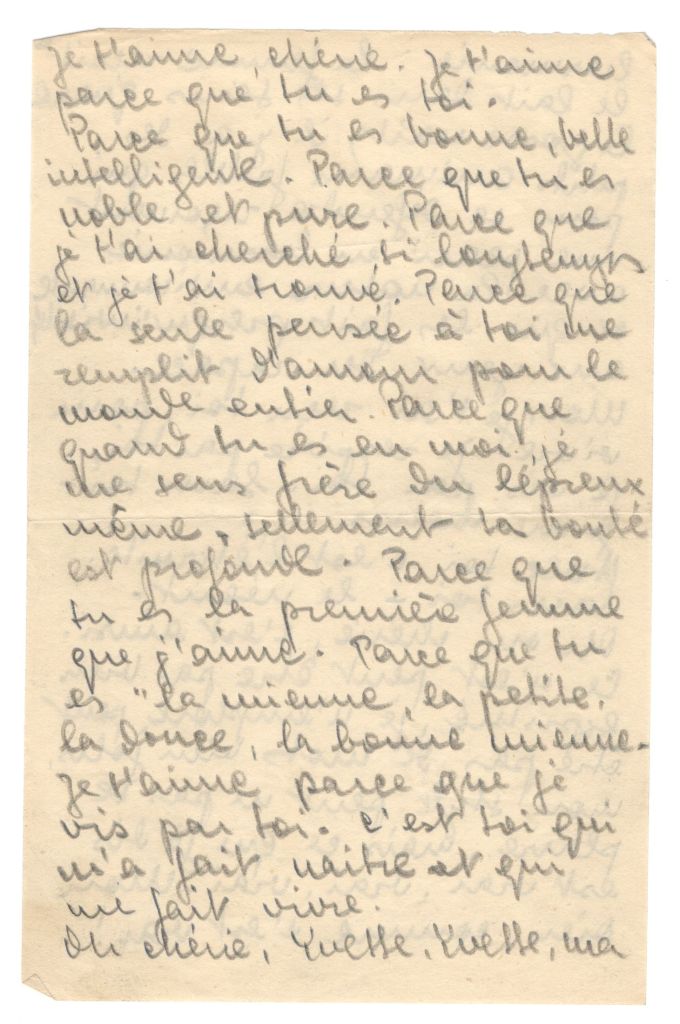 Je t'aime, chérie. Je t'aime
parce que tu es toi.
Parce que tu es bonne, belle
intelligente. Parce que tu es
noble et pure. Parce que
je t'ai cherché si longtemps
et je t'ai trouvé. Parce que
la seule pensée à toi me
remplit d'amour pour le
monde entier. Parce que
quand tu es en moi je
me sens frère du lépreux
même, tellement ta bonté
est profonde. Parce que
tu es la première femme
que j'aime. Parce que tu
es "la mienne, la petite,
la douce, la bonne mienne.
Je t'aime, parce que je
vis par toi. C'est toi qui
m'a fait naitre et qui
me fait vivre.
Oh chérie, Yvette, Yvette, ma